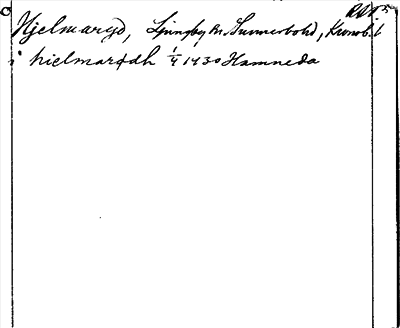 Hjelmaryd, Ljungby sn. Sunnerbohd, Kronob. l
i hielmarydh 1/4 1430 Hamneda